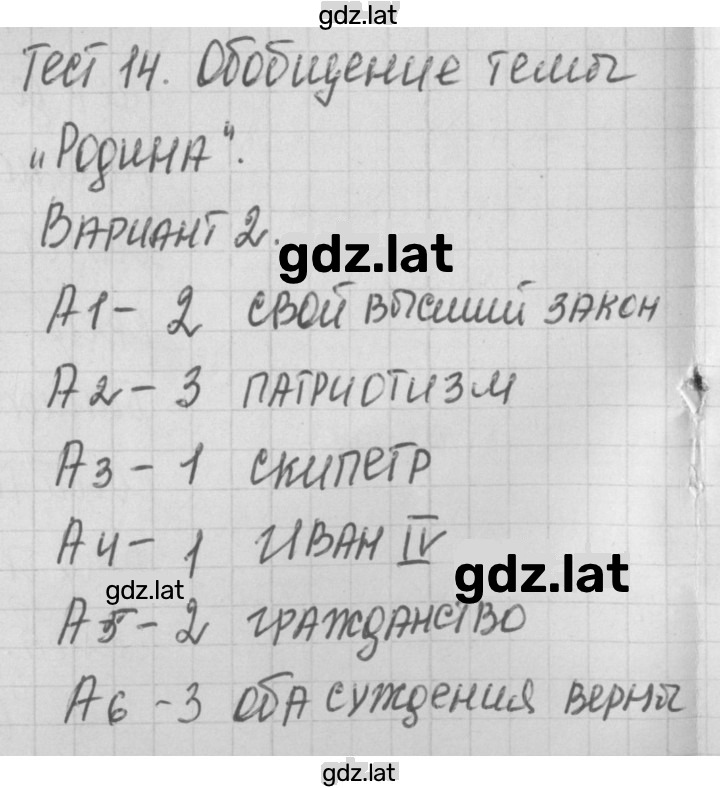 gdz.lat
Тест 14. Обобщение темы
"Родина".
Вариант 2.
gdz.lat
А1 - 2 свой высший закон
А2 - 3 патриотизм
А3 - 1 скипетр
А4 - 1 Иван IV
gdz.lat
gdz.lat
А5 - 2 гражданство
А6 - 3 оба суждения верны
gdz.lat